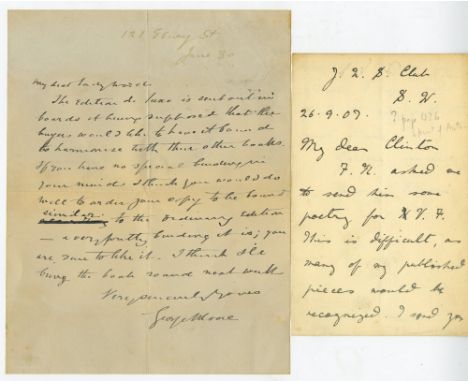 121 Ebury St
June 30
My dear Lady Ward
The Edition de luxe is sent out in
boards it being supposed that the
buyer would like to have it bound
to harmonise with their other books.
If you have no special binding in
your mind I think you would do
well to order your copy to be bound
similar
to the ordinary edition
— a very pretty binding it is; you
are sure to like it. I think I'll
bring the book round next week
Very sincerely yours
George Moore
J. Q. S. Club
S. W.
26.9.07.
My dear Clinton
F. N. asked me
to send him some
poetry for X V. F.
This is difficult, as
many of my published
pieces would be
recognized. I send you